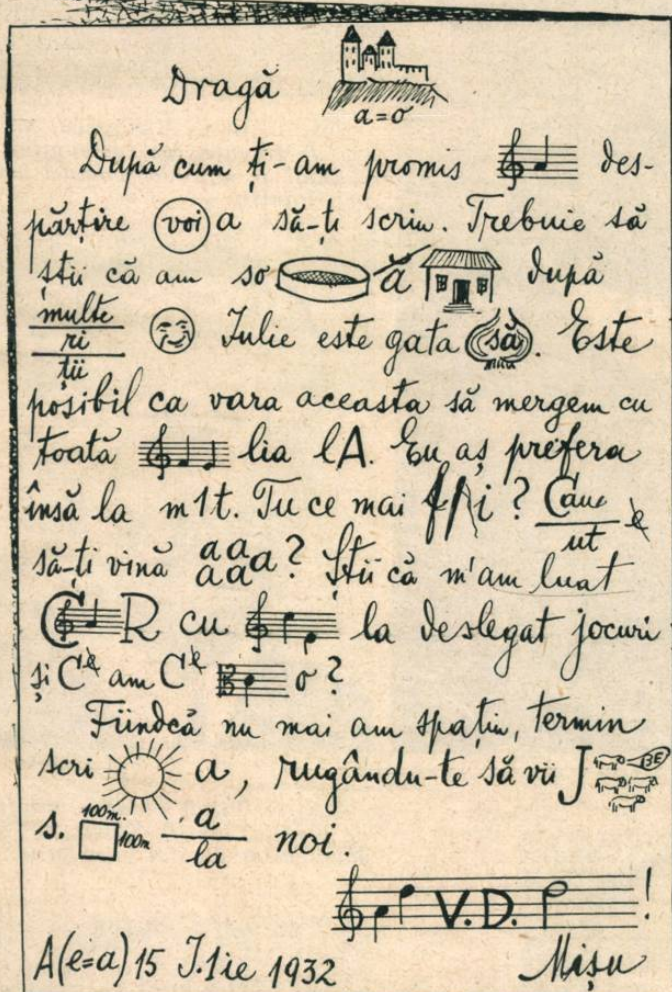 Dragă
a=o
După cum ți-am promis des-
părțire voi a să-ți scriu. Trebuie să
știi că am so ă după
multe
ri
ții
Iulie este gata să. Este
posibil ca vara aceasta să mergem cu
toată lia lA. Eu aș prefera
însă la m1t. Tu ce mai i? Cau
ut
să-ți vină a a a a a? Știi că m'am luat
C R cu la deslegat jocuri
și C am C o?
Fiindcă nu mai am spațiu, termin
scri a, rugându-te să vii J BE
s. 100m. 100m a
la noi.
V.D. !
A(e=a) 15 J.1ie 1932 Mișu